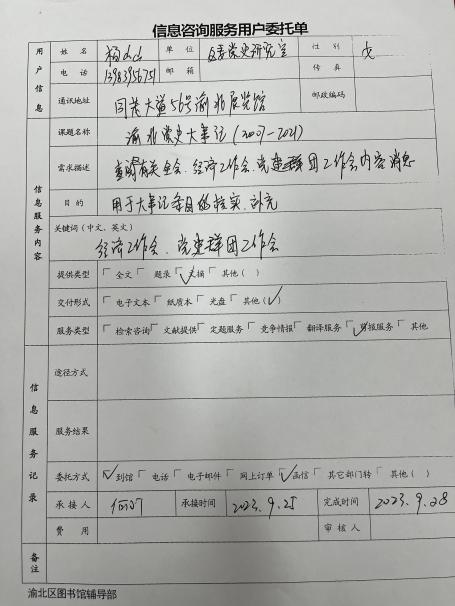 信息咨询服务用户委托单
用户信息
姓名 杨 单位 区委党史研究室 性别 女
电话 13983956751 邮箱 传真
通讯地址 同茂大道56号渝北展览馆 邮政编码
信息服务内容
课题名称 渝北党史大事记(2007-2021)
需求描述 查阅有关全会、经济工作会、党建群团工作会内容消息
目的 用于大事记条目的核实、补充
关键词(中文、英文)
经济工作会、党建群团工作会
提供类型 全文 题录 ✓文摘 其他( )
交付形式 电子文本 纸质本 光盘 其他(✓)
服务类型 检索咨询 文献提供 定题服务 竞争情报 翻译服务 ✓剪报服务 其他
信息服务记录
途径方式
服务结果
委托方式 ✓到馆 电话 电子邮件 网上订单 ✓函信 其它部门转 其他( )
承接人 承接时间 2023.9.25 完成时间 2023.9.28
费用 审核人
备注
渝北区图书馆辅导部